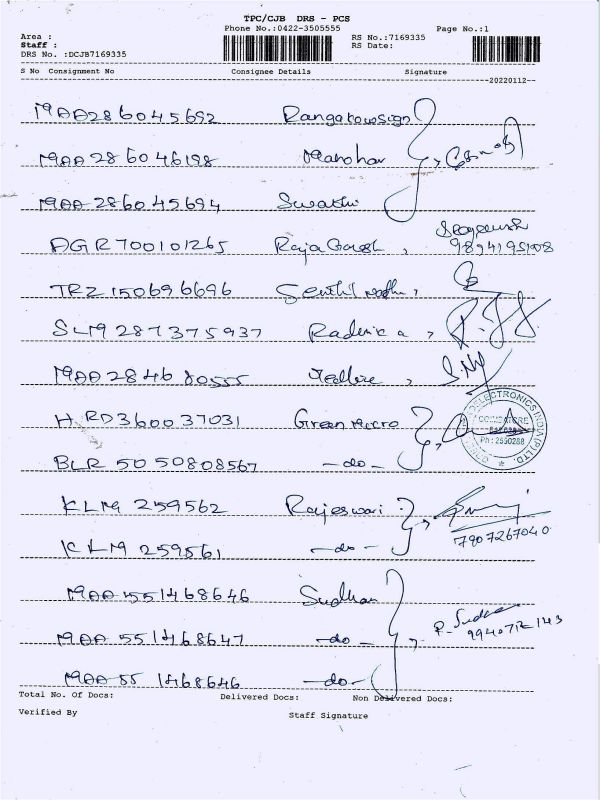 TPC/CJB DRS - PCS
Phone No.:0422-3505555 Page No.:1
Area : RS No.:7169335
Staff : RS Date:
DRS No. :DCJB7169335
S No Consignment No Consignee Details Signature
--20220112--
MAA286045692
MAA286046198 Manohar
MAA286045694 Swathi
AGR700101265 Raja
TRZ150696696
SLM287375937 Radhica
MAA284680555
HRD360037031 Green Micro
COIMBATORE
Ph : 2550288
BLR 5050808567 -do-
KLM 259562 Rajeswari
KLM 259561 -do-
7907267040
MAA 551468646 Sudhan
MAA 551468647 -do-
MAA 55 1468646 -do-
Total No. Of Docs: Delivered Docs: Non Delivered Docs:
Verified By Staff Signature